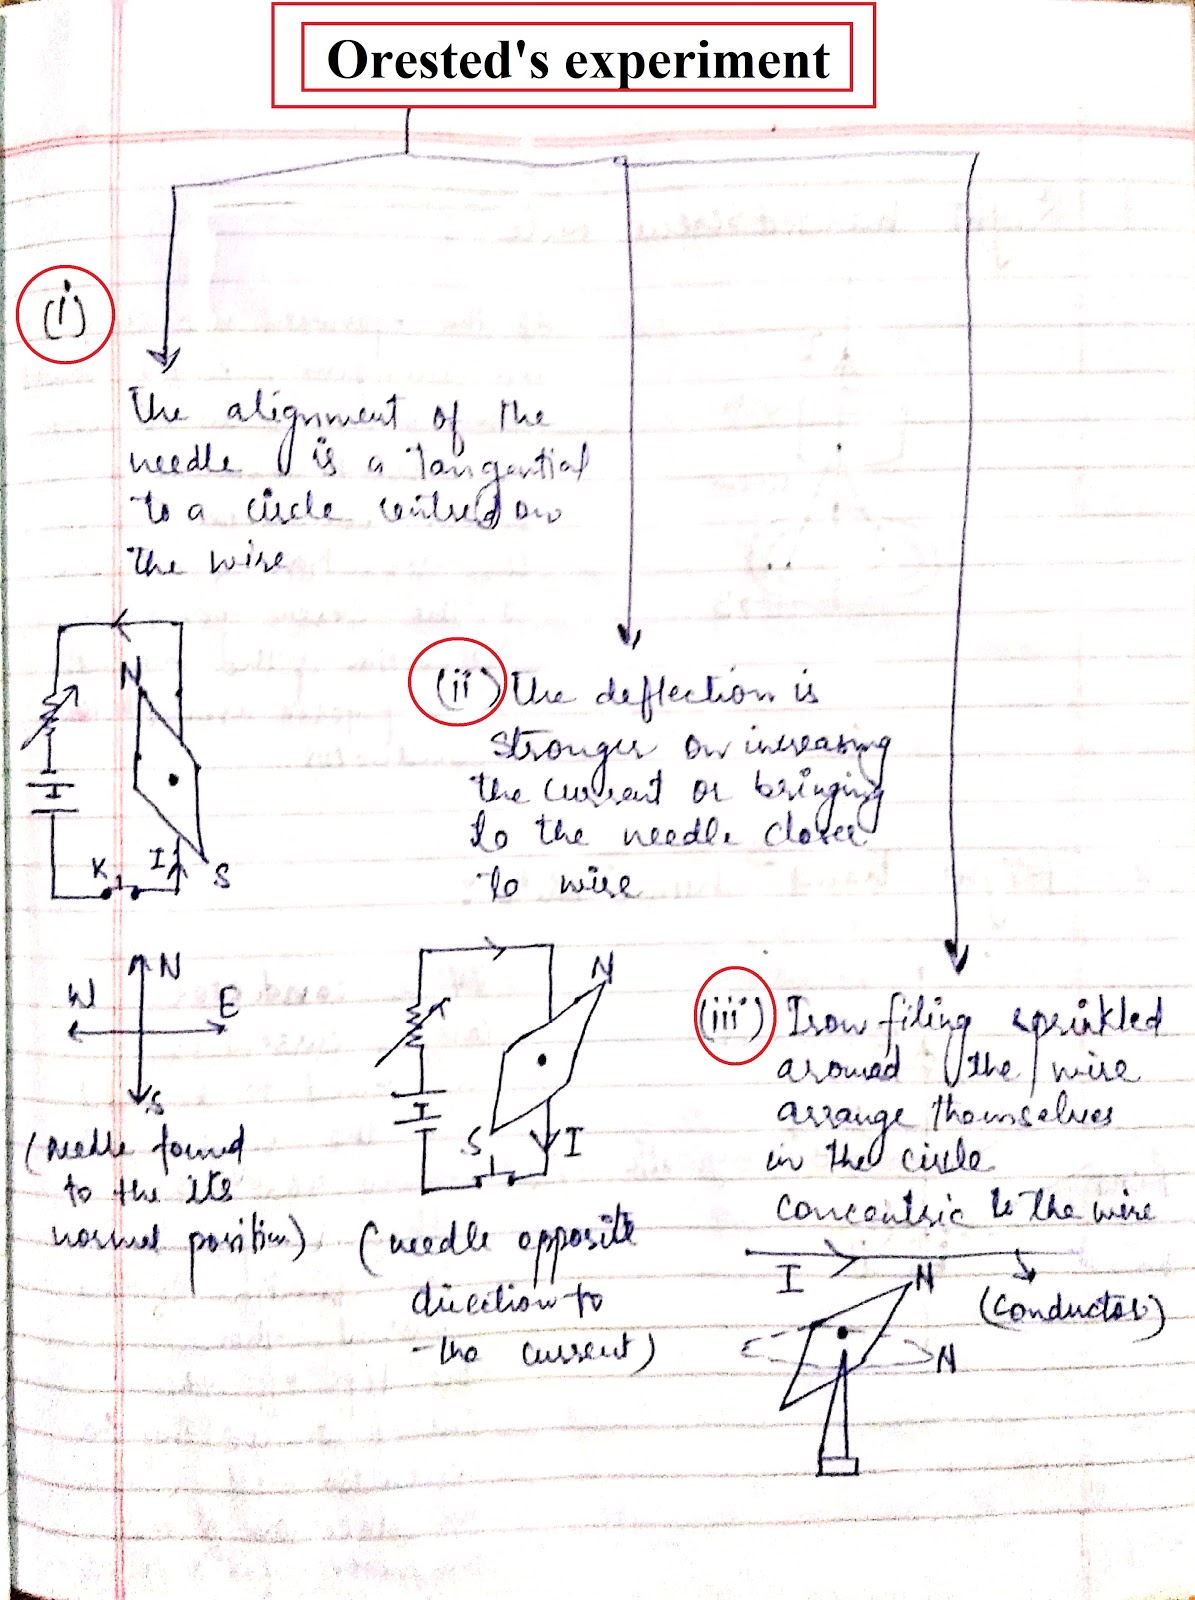 Orested's experiment
(i)
The alignment of the
needle is a Tangential
to a circle centred on
the wire
N
I
K
S
N
W
E
S
(Needle found
to the its
normal position)
(ii) The deflection is
stronger on increasing
the current or bringing
to the needle closer
to wire
N
I
S
(needle opposite
direction to
the current)
(iii) Iron filing sprinkled
around the wire
arrange themselves
in the circle
concentric to the wire
I
N
(conductor)
N